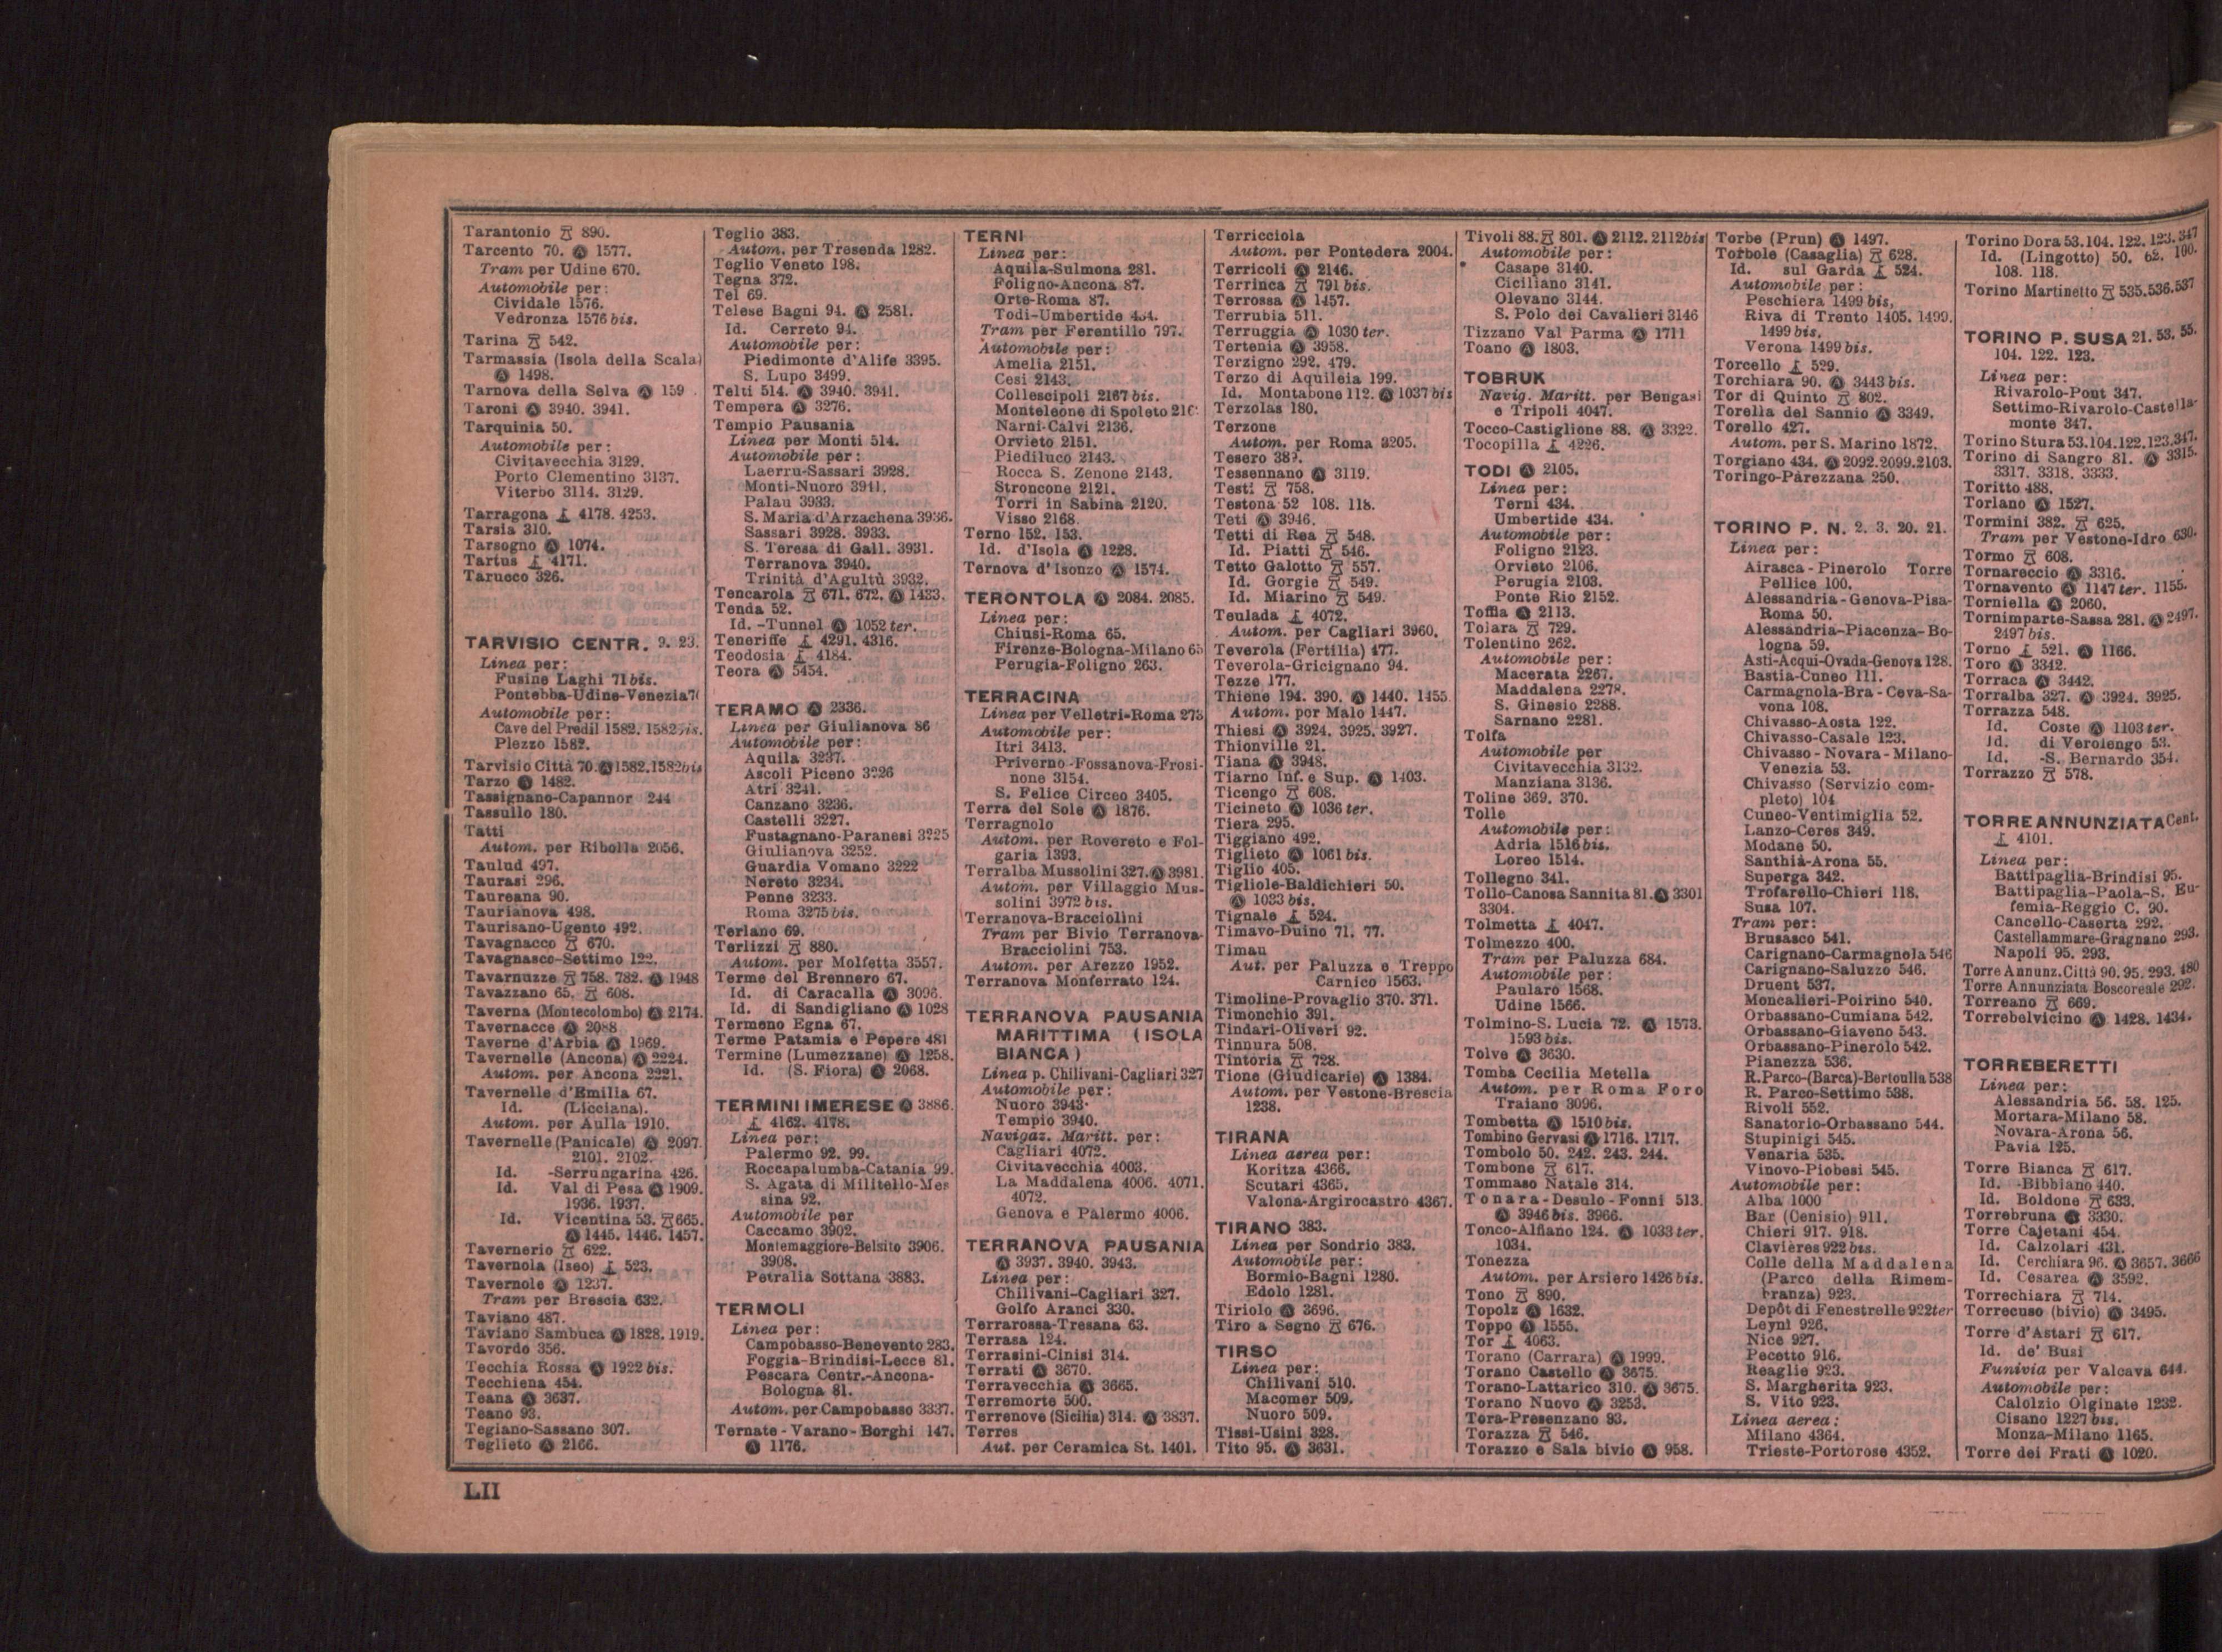 Tarantonio 890.
Tarcento 70. Ⓐ 1577.
Tram per Udine 670.
Automobile per:
Cividale 1576.
Vedronza 1576 bis.
Tarina 542.
Tarmassia (Isola della Scala)
Ⓐ 1498.
Tarnova della Selva Ⓐ 159
Taroni Ⓐ 3940. 3941.
Tarquinia 50.
Automobile per:
Civitavecchia 3129.
Porto Clementino 3137.
Viterbo 3114. 3129.
Tarragona 4178. 4253.
Tarsia 310.
Tarsogno Ⓐ 1074.
Tartus 4171.
Tarueco 326.
TARVISIO CENTR. 9. 23.
Linea per:
Fusine Laghi 71 bis.
Pontebba-Udine-Venezia
Automobile per:
Cave del Predil 1582. 1582 bis.
Plezzo 1582.
Tarvisio Città 70. Ⓐ 1582. 1582 bis
Tarzo Ⓐ 1482.
Tassignano-Capannor 244
Tassullo 180.
Tatti
Autom. per Ribolla 2056.
Taulud 497.
Taurasi 296.
Taureana 90.
Taurianova 498.
Taurisano-Ugento 492.
Tavagnacco 670.
Tavagnasco-Settimo 122.
Tavarnuzze 758. 782. Ⓐ 1948
Tavazzano 65. 608.
Taverna (Montecolombo) Ⓐ 2174.
Tavernacce Ⓐ 2088
Taverne d'Arbia Ⓐ 1969.
Tavernelle (Ancona) Ⓐ 2224.
Autom. per Ancona 2221.
Tavernelle d'Emilia 67.
Id. (Licciana).
Autom. per Aulla 1910.
Tavernelle (Panicale) Ⓐ 2097.
2101. 2102.
Id. -Serrungarina 426.
Id. Val di Pesa Ⓐ 1909.
1936. 1937.
Id. Vicentina 53. 665.
Ⓐ 1445. 1446. 1457.
Tavernerio 622.
Tavernola (Iseo) 523.
Tavernole Ⓐ 1237.
Tram per Brescia 632.
Taviano 487.
Taviano Sambuca Ⓐ 1828. 1919.
Tavordo 356.
Tecchia Rossa Ⓐ 1922 bis.
Tecchiena 454.
Teana Ⓐ 3637.
Teano 93.
Tegiano-Sassano 307.
Teglieto Ⓐ 2166.
Teglio 383.
Autom. per Tresenda 1282.
Teglio Veneto 198.
Tegna 372.
Tel 69.
Telese Bagni 94. Ⓐ 2581.
Id. Cerreto 94.
Automobile per:
Piedimonte d'Alife 3395.
S. Lupo 3499.
Telti 514. Ⓐ 3940. 3941.
Tempera Ⓐ 3276.
Tempio Pausania
Linea per Monti 514.
Automobile per:
Laerru-Sassari 3928.
Monti-Nuoro 3941.
Palau 3933.
S. Maria d'Arzachena 3936.
Sassari 3928. 3933.
S. Teresa di Gall. 3931.
Terranova 3940.
Trinità d'Agultù 3932.
Tencarola 671. 672. Ⓐ 1433.
Tenda 52.
Id. -Tunnel Ⓐ 1052 ter.
Teneriffe 4291. 4316.
Teodosia 4184.
Teora Ⓐ 5454.
TERAMO Ⓐ 2336.
Linea per Giulianova 86
Automobile per:
Aquila 3237.
Ascoli Piceno 3226
Atri 3241.
Canzano 3236.
Castelli 3227.
Fustagnano-Paranesi 3225
Giulianova 3252.
Guardia Vomano 3222
Nereto 3234.
Penne 3233.
Roma 3275 bis.
Terlano 69.
Terlizzi 880.
Autom. per Molfetta 3557.
Terme del Brennero 67.
Id. di Caracalla Ⓐ 3096.
Id. di Sandigliano Ⓐ 1028
Termeno Egna 67.
Terme Patamia e Pepere 481
Termine (Lumezzane) Ⓐ 1258.
Id. (S. Fiora) Ⓐ 2068.
TERMINI IMERESE Ⓐ 3886.
4162. 4178.
Linea per:
Palermo 92. 99.
Roccapalumba-Catania 99.
S. Agata di Militello-Mes
sina 92.
Automobile per
Caccamo 3902.
Montemaggiore-Belsito 3906.
3908.
Petralia Sottana 3883.
TERMOLI
Linea per:
Campobasso-Benevento 283.
Foggia-Brindisi-Lecce 81.
Pescara Centr.-Ancona-
Bologna 81.
Autom. per Campobasso 3337.
Ternate - Varano - Borghi 147.
Ⓐ 1176.
TERNI
Linea per:
Aquila-Sulmona 281.
Foligno-Ancona 87.
Orte-Roma 87.
Todi-Umbertide 434.
Tram per Ferentillo 797.
Automobile per:
Amelia 2151.
Cesi 2143.
Collescipoli 2167 bis.
Monteleone di Spoleto
Narni-Calvi 2136.
Orvieto 2151.
Piediluco 2143.
Rocca S. Zenone 2143.
Stroncone 2121.
Torri in Sabina 2120.
Visso 2168.
Terno 152. 153.
Id. d'Isola Ⓐ 1228.
Ternova d'Isonzo Ⓐ 1574.
TERONTOLA Ⓐ 2084. 2085.
Linea per:
Chiusi-Roma 65.
Firenze-Bologna-Milano 65
Perugia-Foligno 263.
TERRACINA
Linea per Velletri-Roma 273
Automobile per:
Itri 3413.
Priverno-Fossanova-Frosi-
none 3154.
S. Felice Circeo 3405.
Terra del Sole Ⓐ 1876.
Terragnolo
Autom. per Rovereto e Fol-
garia 1393.
Terralba Mussolini 327. Ⓐ 3981.
Autom. per Villaggio Mus-
solini 3972 bis.
Terranova-Bracciolini
Tram per Bivio Terranova-
Bracciolini 753.
Autom. per Arezzo 1952.
Terranova Monferrato 124.
TERRANOVA PAUSANIA
MARITTIMA (ISOLA
BIANCA)
Linea p. Chilivani-Cagliari 327
Automobile per:
Nuoro 3943.
Tempio 3940.
Navigaz. Maritt. per:
Cagliari 4072.
Civitavecchia 4003.
La Maddalena 4006. 4071.
4072.
Genova e Palermo 4006.
TERRANOVA PAUSANIA
Ⓐ 3937. 3940. 3943.
Linea per:
Chilivani-Cagliari 327.
Golfo Aranci 330.
Terrarossa-Tresana 63.
Terrasa 124.
Terrasini-Cinisi 314.
Terrati Ⓐ 3670.
Terravecchia Ⓐ 3665.
Terremorte 500.
Terrenove (Sicilia) 314. Ⓐ 3837.
Terres
Aut. per Ceramica St. 1401.
Terricciola
Autom. per Pontedera 2004.
Terricoli Ⓐ 2146.
Terrinca 791 bis.
Terrossa Ⓐ 1457.
Terrubia 511.
Terruggia Ⓐ 1030 ter.
Tertenia Ⓐ 3958.
Terzigno 292. 479.
Terzo di Aquileia 199.
Id. Montabone 112. Ⓐ 1037 bis
Terzolas 180.
Terzone
Autom. per Roma 3205.
Tesero 387.
Tessennano Ⓐ 3119.
Testi 758.
Testona 52 108. 118.
Teti Ⓐ 3946.
Tetti di Rea 548.
Id. Piatti 546.
Tetto Galotto 557.
Id. Gorgie 549.
Id. Miarino 549.
Teulada 4072.
Autom. per Cagliari 3960.
Teverola (Fertilia) 477.
Teverola-Gricignano 94.
Tezze 177.
Thiene 194. 390. Ⓐ 1440. 1455
Autom. por Malo 1447.
Thiesi Ⓐ 3924. 3925. 3927.
Thionville 21.
Tiana Ⓐ 3948.
Tiarno Inf. e Sup. Ⓐ 1403.
Ticengo 608.
Ticineto Ⓐ 1036 ter.
Tiera 295.
Tiggiano 492.
Tiglieto Ⓐ 1061 bis.
Tiglio 405.
Tigliole-Baldichieri 50.
Ⓐ 1033 bis.
Tignale 524.
Timavo-Duino 71. 77.
Timau
Aut. per Paluzza e Treppo
Carnico 1563.
Timoline-Provaglio 370. 371.
Timonchio 391.
Tindari-Oliveri 92.
Tinnura 508.
Tintoria 728.
Tione (Giudicarie) Ⓐ 1384.
Autom. per Vestone-Brescia
1238.
TIRANA
Linea aerea per:
Koritza 4366.
Scutari 4365.
Valona-Argirocastro 4367.
TIRANO 383.
Linea per Sondrio 383.
Automobile per:
Bormio-Bagni 1280.
Edolo 1281.
Tiriolo Ⓐ 3696.
Tiro a Segno 676.
TIRSO
Linea per:
Chilivani 510.
Macomer 509.
Nuoro 509.
Tissi-Usini 328.
Tito 95. Ⓐ 3631.
Tivoli 88. 801. Ⓐ 2112. 2112 bis
Automobile per:
Casape 3140.
Ciciliano 3141.
Olevano 3144.
S. Polo dei Cavalieri 3146
Tizzano Val Parma Ⓐ 1711
Toano Ⓐ 1803.
TOBRUK
Navig. Maritt. per Bengasi
e Tripoli 4047.
Tocco-Castiglione 88. Ⓐ 3322.
Tocopilla 4226.
TODI Ⓐ 2105.
Linea per:
Terni 434.
Umbertide 434.
Automobile per:
Foligno 2123.
Orvieto 2106.
Perugia 2103.
Ponte Rio 2152.
Toffia Ⓐ 2113.
Tolara 729.
Tolentino 262.
Automobile per:
Macerata 2267.
Maddalena 2278.
S. Ginesio 2288.
Sarnano 2281.
Tolfa
Automobile per
Civitavecchia 3132.
Manziana 3136.
Toline 369. 370.
Tolle
Automobile per:
Adria 1516 bis.
Loreo 1514.
Tollegno 341.
Tollo-Canosa Sannita 81. Ⓐ 3301
3304.
Tolmetta 4047.
Tolmezzo 400.
Tram per Paluzza 684.
Automobile per:
Paularo 1568.
Udine 1566.
Tolmino-S. Lucia 72. Ⓐ 1573.
1593 bis.
Tolve Ⓐ 3630.
Tomba Cecilia Metella
Autom. per Roma Foro
Traiano 3096.
Tombetta Ⓐ 1510 bis.
Tombino Gervasi Ⓐ 1716. 1717.
Tombolo 50. 242. 243. 244.
Tombone 617.
Tommaso Natale 314.
Tonara-Desulo-Fonni 513.
Ⓐ 3946 bis. 3966.
Tonco-Alfiano 124. Ⓐ 1033 ter.
1034.
Tonezza
Autom. per Arsiero 1426 bis.
Tono 890.
Topolz Ⓐ 1632.
Toppo Ⓐ 1555.
Tor 4063.
Torano (Carrara) Ⓐ 1999.
Torano Castello Ⓐ 3675.
Torano-Lattarico 310. Ⓐ 3675.
Torano Nuovo Ⓐ 3253.
Tora-Presenzano 93.
Torazza 546.
Torazzo e Sala bivio Ⓐ 958.
Torbe (Prun) Ⓐ 1497.
Torbole (Casaglia) 628.
Id. sul Garda 524.
Automobile per:
Peschiera 1499 bis,
Riva di Trento 1405. 1499.
1499 bis.
Verona 1499 bis.
Torcello 529.
Torchiara 90. Ⓐ 3443 bis.
Tor di Quinto 802.
Torella del Sannio Ⓐ 3349.
Torello 427.
Autom. per S. Marino 1872.
Torgiano 434. Ⓐ 2092. 2099. 2103.
Toringo-Parezzana 250.
TORINO P. N. 2. 3. 20. 21.
Linea per:
Airasca - Pinerolo Torre
Pellice 100.
Alessandria - Genova-Pisa-
Roma 50.
Alessandria-Piacenza-Bo-
logna 59.
Asti-Acqui-Ovada-Genova 128.
Bastia-Cuneo 111.
Carmagnola-Bra - Ceva-Sa-
vona 108.
Chivasso-Aosta 122.
Chivasso-Casale 123.
Chivasso - Novara - Milano-
Venezia 53.
Chivasso (Servizio com-
pleto) 104
Cuneo-Ventimiglia 52.
Lanzo-Ceres 349.
Modane 50.
Santhià-Arona 55.
Superga 342.
Trofarello-Chieri 118.
Susa 107.
Tram per:
Brusasco 541.
Carignano-Carmagnola 546
Carignano-Saluzzo 546.
Druent 537.
Moncalieri-Poirino 540.
Orbassano-Cumiana 542.
Orbassano-Giaveno 543.
Orbassano-Pinerolo 542.
Pianezza 536.
R.Parco-(Barca)-Bertoulla 538
R. Parco-Settimo 538.
Rivoli 552.
Sanatorio-Orbassano 544.
Stupinigi 545.
Venaria 535.
Vinovo-Piobesi 545.
Automobile per:
Alba 1000
Bar (Cenisio) 911.
Chieri 917. 918.
Clavières 922 bis.
Colle della Maddalena
(Parco della Rimem-
branza) 923.
Depôt di Fenestrelle 922 ter
Leynì 926.
Nice 927.
Pecetto 916.
Reaglie 923.
S. Margherita 923.
S. Vito 923.
Linea aerea:
Milano 4364.
Trieste-Portorose 4352.
Torino Dora 53. 104. 122. 123. 347
Id. (Lingotto) 50. 62. 100.
108. 118.
Torino Martinetto 535. 536. 537
TORINO P. SUSA 21. 53. 55.
104. 122. 123.
Linea per:
Rivarolo-Pont 347.
Settimo-Rivarolo-Castella-
monte 347.
Torino Stura 53. 104. 122. 123. 347.
Torino di Sangro 81. Ⓐ 3315.
3317. 3318. 3333.
Toritto 488.
Torlano Ⓐ 1527.
Tormini 382. 625.
Tram per Vestone-Idro 630.
Tormo 608.
Tornareccio Ⓐ 3316.
Tornavento Ⓐ 1147 ter. 1155.
Torniella Ⓐ 2060.
Tornimparte-Sassa 281. Ⓐ 2497.
2497 bis.
Torno 521. Ⓐ 1166.
Toro Ⓐ 3342.
Torraca Ⓐ 3442.
Torralba 327. Ⓐ 3924. 3925.
Torrazza 548.
Id. Coste Ⓐ 1103 ter.
Id. di Verolengo 53.
Id. -S. Bernardo 354.
Torrazzo 578.
TORRE ANNUNZIATA Cent.
4101.
Linea per:
Battipaglia-Brindisi 95.
Battipaglia-Paola-S. Eu-
femia-Reggio C. 90.
Cancello-Caserta 292.
Castellammare-Gragnano 293.
Napoli 95. 293.
Torre Annunz. Città 90. 95. 293. 480
Torre Annunziata Boscoreale 292.
Torreano 669.
Torrebelvicino Ⓐ 1428. 1434.
TORREBERETTI
Linea per:
Alessandria 56. 58. 125.
Mortara-Milano 58.
Novara-Arona 56.
Pavia 125.
Torre Bianca 617.
Id. -Bibbiano 440.
Id. Boldone 633.
Torrebruna Ⓐ 3330.
Torre Cajetani 454.
Id. Calzolari 431.
Id. Cerchiara 96. Ⓐ 3657. 3666
Id. Cesarea Ⓐ 3592.
Torrechiara 714.
Torrecuso (bivio) Ⓐ 3495.
Torre d'Astari 617.
Id. de' Busi
Funivia per Valcava 644.
Automobile per:
Calolzio Olginate 1232.
Cisano 1227 bis.
Monza-Milano 1165.
Torre dei Frati Ⓐ 1020.
LII